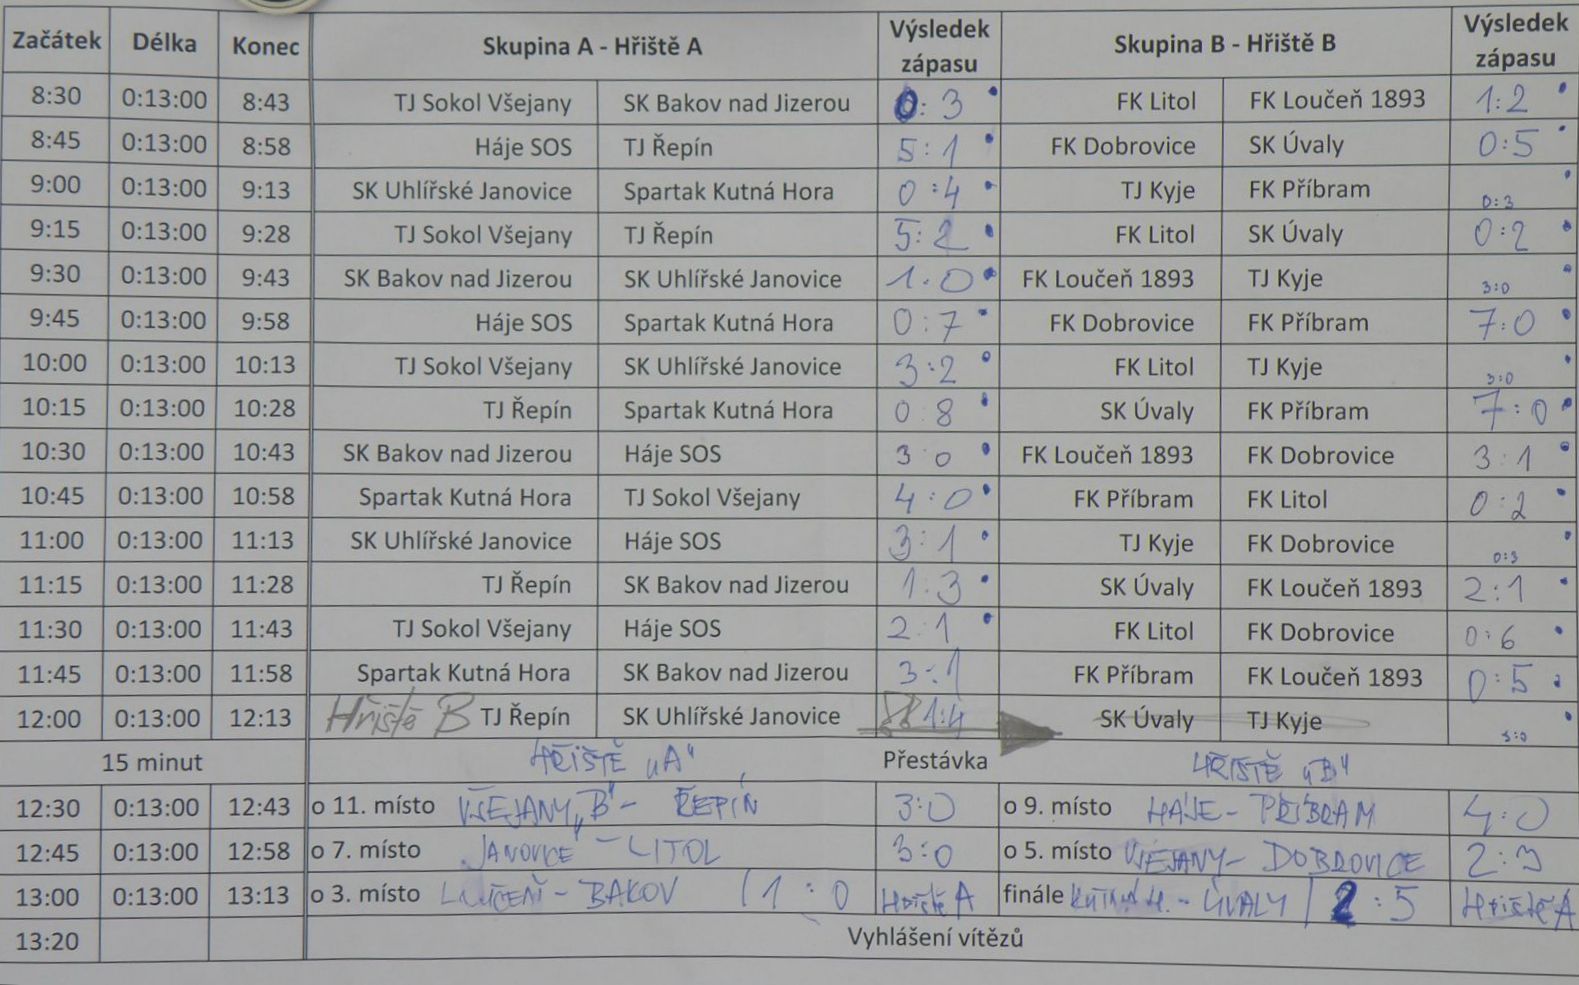 Začátek Délka Konec Skupina A - Hřiště A Výsledek zápasu Skupina B - Hřiště B Výsledek zápasu
8:30 0:13:00 8:43 TJ Sokol Všejany SK Bakov nad Jizerou 0:3 FK Litol FK Loučeň 1893 1:2
8:45 0:13:00 8:58 Háje SOS TJ Řepín 5:1 FK Dobrovice SK Úvaly 0:5
9:00 0:13:00 9:13 SK Uhlířské Janovice Spartak Kutná Hora 0:4 TJ Kyje FK Příbram 0:3
9:15 0:13:00 9:28 TJ Sokol Všejany TJ Řepín 5:2 FK Litol SK Úvaly 0:2
9:30 0:13:00 9:43 SK Bakov nad Jizerou SK Uhlířské Janovice 1:0 FK Loučeň 1893 TJ Kyje 3:0
9:45 0:13:00 9:58 Háje SOS Spartak Kutná Hora 0:7 FK Dobrovice FK Příbram 7:0
10:00 0:13:00 10:13 TJ Sokol Všejany SK Uhlířské Janovice 3:2 FK Litol TJ Kyje 3:0
10:15 0:13:00 10:28 TJ Řepín Spartak Kutná Hora 0:8 SK Úvaly FK Příbram 7:0
10:30 0:13:00 10:43 SK Bakov nad Jizerou Háje SOS 3:0 FK Loučeň 1893 FK Dobrovice 3:1
10:45 0:13:00 10:58 Spartak Kutná Hora TJ Sokol Všejany 4:0 FK Příbram FK Litol 0:2
11:00 0:13:00 11:13 SK Uhlířské Janovice Háje SOS 3:1 TJ Kyje FK Dobrovice 0:3
11:15 0:13:00 11:28 TJ Řepín SK Bakov nad Jizerou 1:3 SK Úvaly FK Loučeň 1893 2:1
11:30 0:13:00 11:43 TJ Sokol Všejany Háje SOS 2:1 FK Litol FK Dobrovice 0:6
11:45 0:13:00 11:58 Spartak Kutná Hora SK Bakov nad Jizerou 3:1 FK Příbram FK Loučeň 1893 0:5
12:00 0:13:00 12:13 Hřiště B TJ Řepín SK Uhlířské Janovice 1:4 SK Úvaly TJ Kyje 3:0
15 minut HŘIŠTĚ „A" Přestávka HŘIŠTĚ „B"
12:30 0:13:00 12:43 o 11. místo VŠEJANY „B" - ŘEPÍN 3:0 o 9. místo HÁJE - PŘÍBRAM 4:0
12:45 0:13:00 12:58 o 7. místo JANOVICE - LITOL 3:0 o 5. místo VŠEJANY - DOBROVICE 2:3
13:00 0:13:00 13:13 o 3. místo LOUČEŇ - BAKOV / 1:0 Hřiště A finále KUTNÁ H. - ÚVALY / 2:5 Hřiště A
13:20 Vyhlášení vítězů